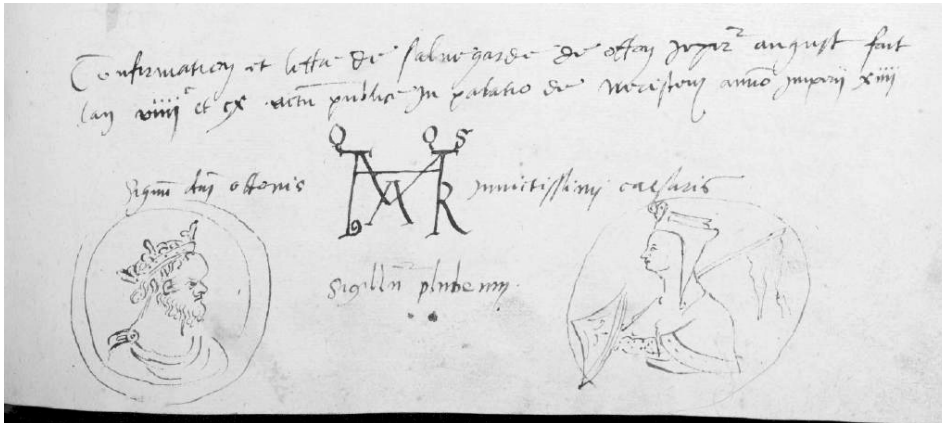 Confirmation et lettre de salvegarde de otton imper^r august fait
lan viiii^c et cx actum publice in palatio de anno imperii xiiii
O O S
signum dni ottonis invictissimi caesaris
L A R
sigillum plubeum.